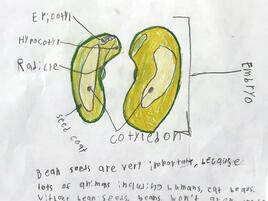 Epicotyl
Hypocotyl
Radicle
Embryo
seed coat
cotyledon
Bean seeds are very important, because
lots of animals including humans, eat beans.
Without bean seeds, beans won't grow